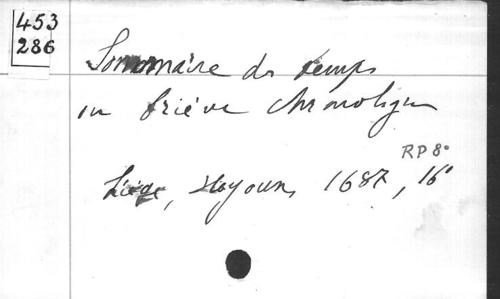 453
286
Sommaire des temps
ou briève chronologie
RP 8°
Liège, Hoyoux, 1687, 16°